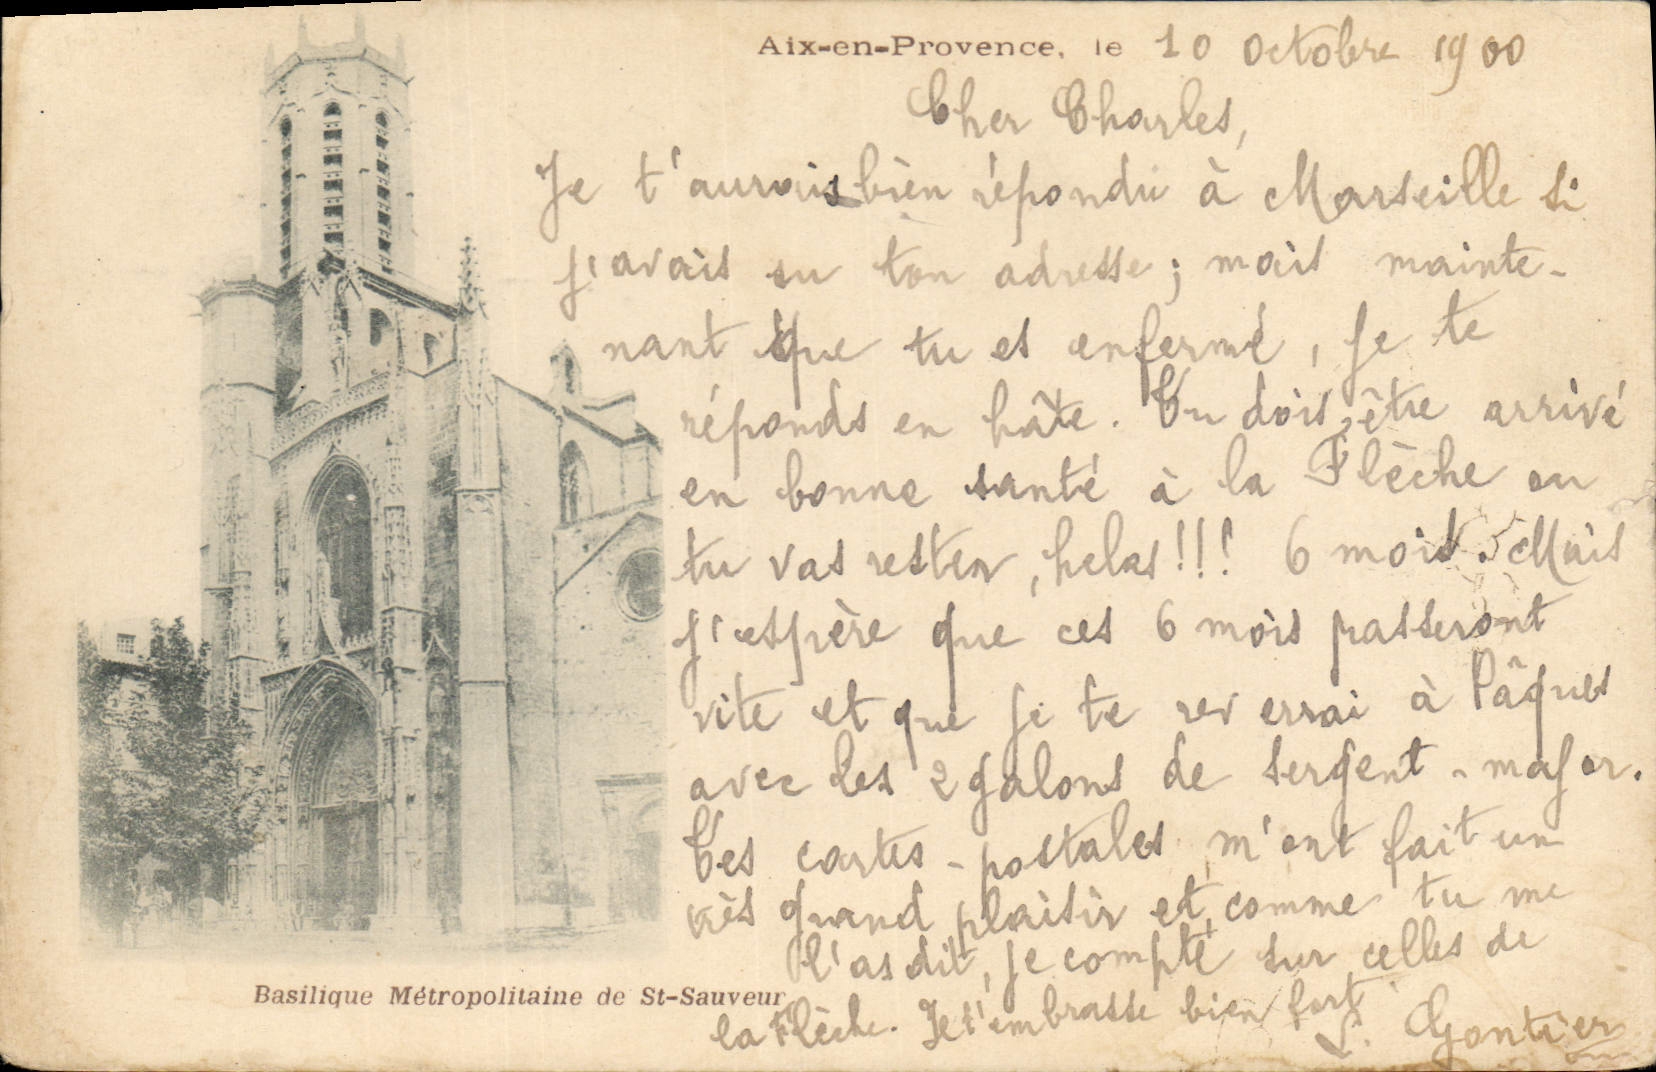 Aix-en-Provence, le 10 octobre 1900
Cher Charles,
Je t'aurais bien répondu à Marseille si
j'avais su ton adresse ; mais mainte-
nant que tu es enfermé, je te
réponds en hâte. Tu dois être arrivé
en bonne santé à la Flèche ou
tu vas rester, helas!!! 6 mois. Mais
j'espère que ces 6 mois passeront
vite et que je te reverrai à Pâques
avec les 2 galons de sergent-major.
Tes cartes-postales m'ont fait un
très grand plaisir et, comme tu me
l'as dit, je compte sur celles de
la Flèche. Je t'embrasse bien fort
L. Gontier
Basilique Métropolitaine de St-Sauveur